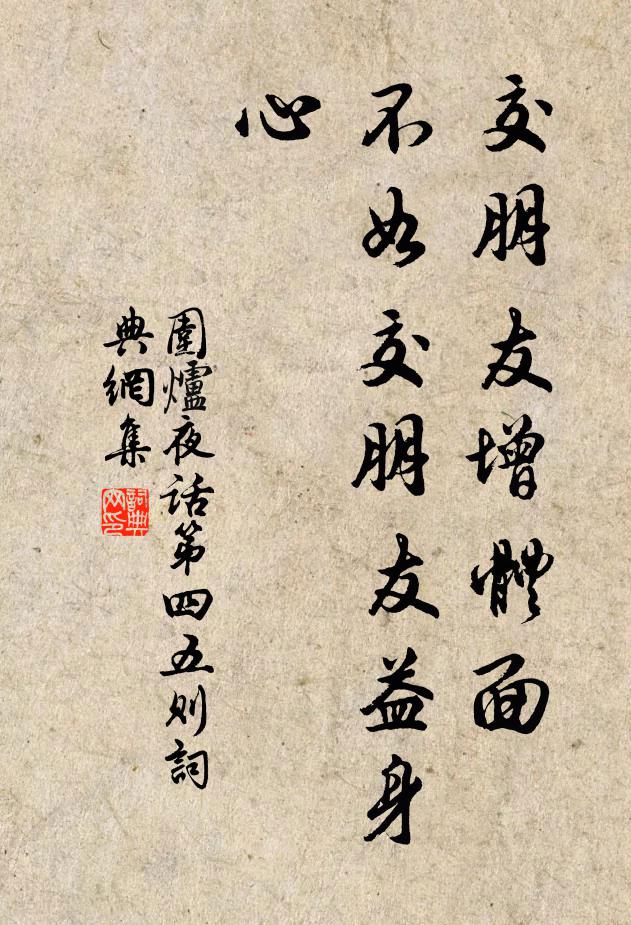 交朋友增體面
不如交朋友益身
心
圍爐夜話第四五則詞
典網集
詞典
网印